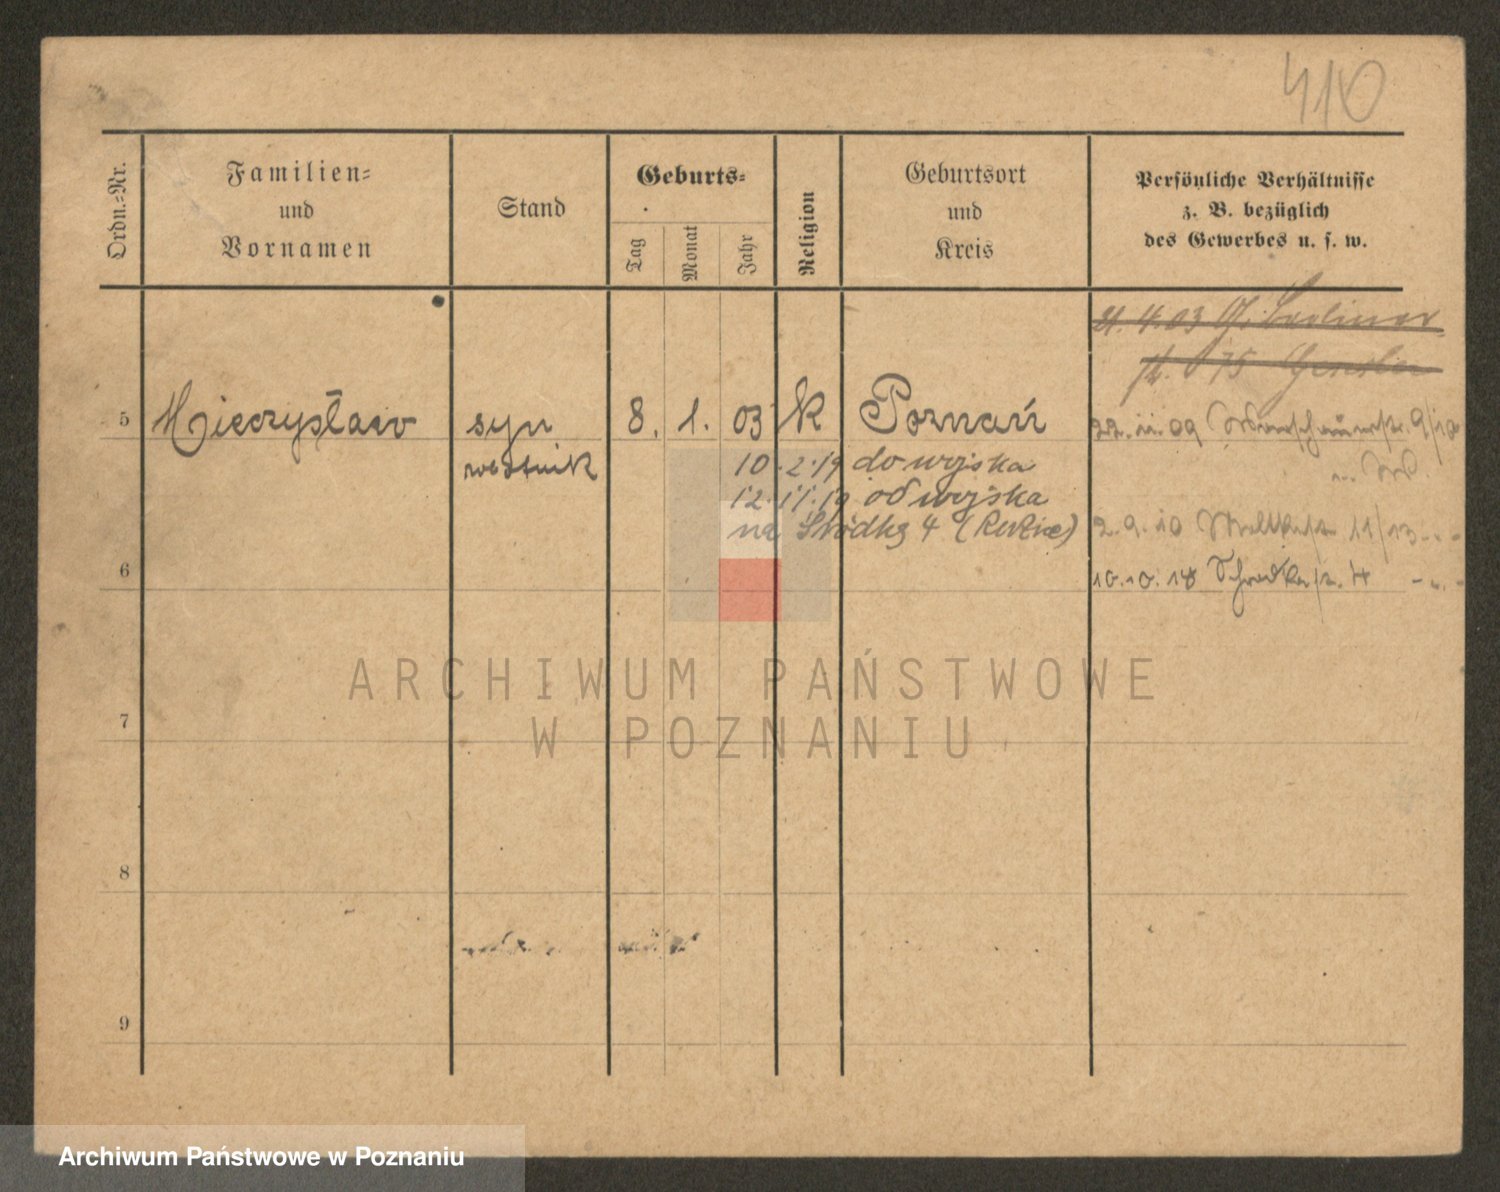 410
Ordn.-Nr.
Familien-
und
Vornamen
Stand
Geburts-
Tag
Monat
Jahr
Religion
Geburtsort
und
Kreis
Persönliche Verhältnisse
z. B. bezüglich
des Gewerbes u. s. w.
21. 4. 03
75
5 Mieczysław syn 8. 1. 03 k Poznań
22. 11. 09 9/10
10. 2. 19 do wojska
12. 11. 19 od wojska
na Śródkę 4
2. 9. 10 11/13
6
10. 10. 18 Schrodkastr. 4
ARCHIWUM PAŃSTWOWE
W POZNANIU
7
8
9
Archiwum Państwowe w Poznaniu